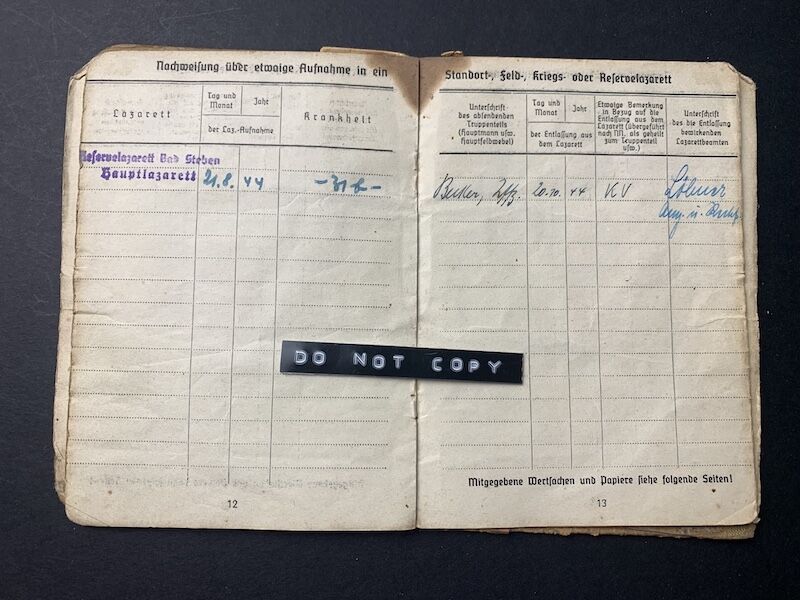 Nachweisung über etwaige Aufnahme in ein
Lazarett
Tag und
Monat
Jahr
der Laz.-Aufnahme
Krankheit
Reservelazarett Bad Steben
Hauptlazarett
21.8.
44
-31b-
12
Standort-, Feld-, Kriegs- oder Reservelazarett
Unterschrift
des absendenden
Truppenteils
(Hauptmann usw.
Hauptfeldwebel)
Tag und
Monat
Jahr
der Entlassung aus
dem Lazarett
Etwaige Bemerkung
in Bezug auf die
Entlassung aus dem
Lazarett (übergeführt
nach NN., als geheilt
zum Truppenteil
usw.)
Unterschrift
des die Entlassung
bewirkenden
Lazarettbeamten
20.10.
44
KV
Mitgegebene Wertsachen und Papiere siehe folgende Seiten!
13
DO NOT COPY